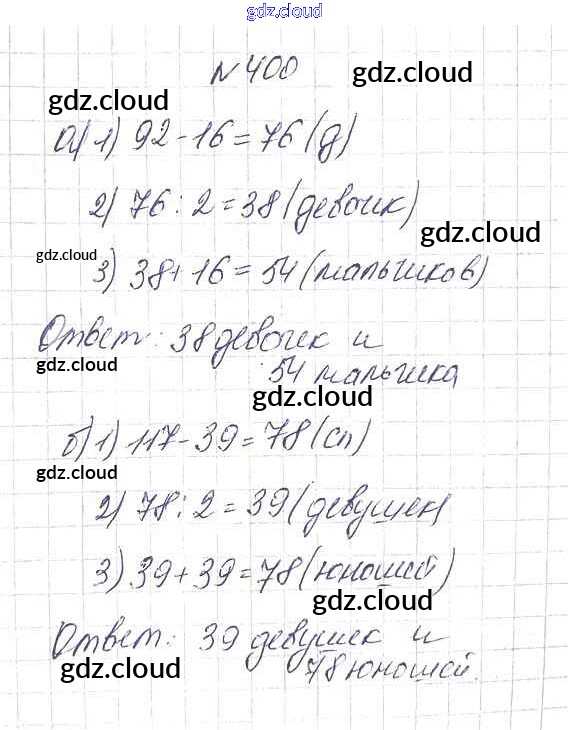 gdz.cloud
№ 400
gdz.cloud
gdz.cloud
а) 1) 92 - 16 = 76 (д)
2) 76 : 2 = 38 (девочек)
gdz.cloud
gdz.cloud
3) 38 + 16 = 54 (мальчиков)
Ответ: 38 девочек и
gdz.cloud
54 мальчика
gdz.cloud
б) 1) 117 - 39 = 78 (сп)
gdz.cloud
2) 78 : 2 = 39 (девушек)
3) 39 + 39 = 78 (юношей)
gdz.cloud
Ответ: 39 девушек и
gdz.cloud
78 юношей.
gdz.cloud